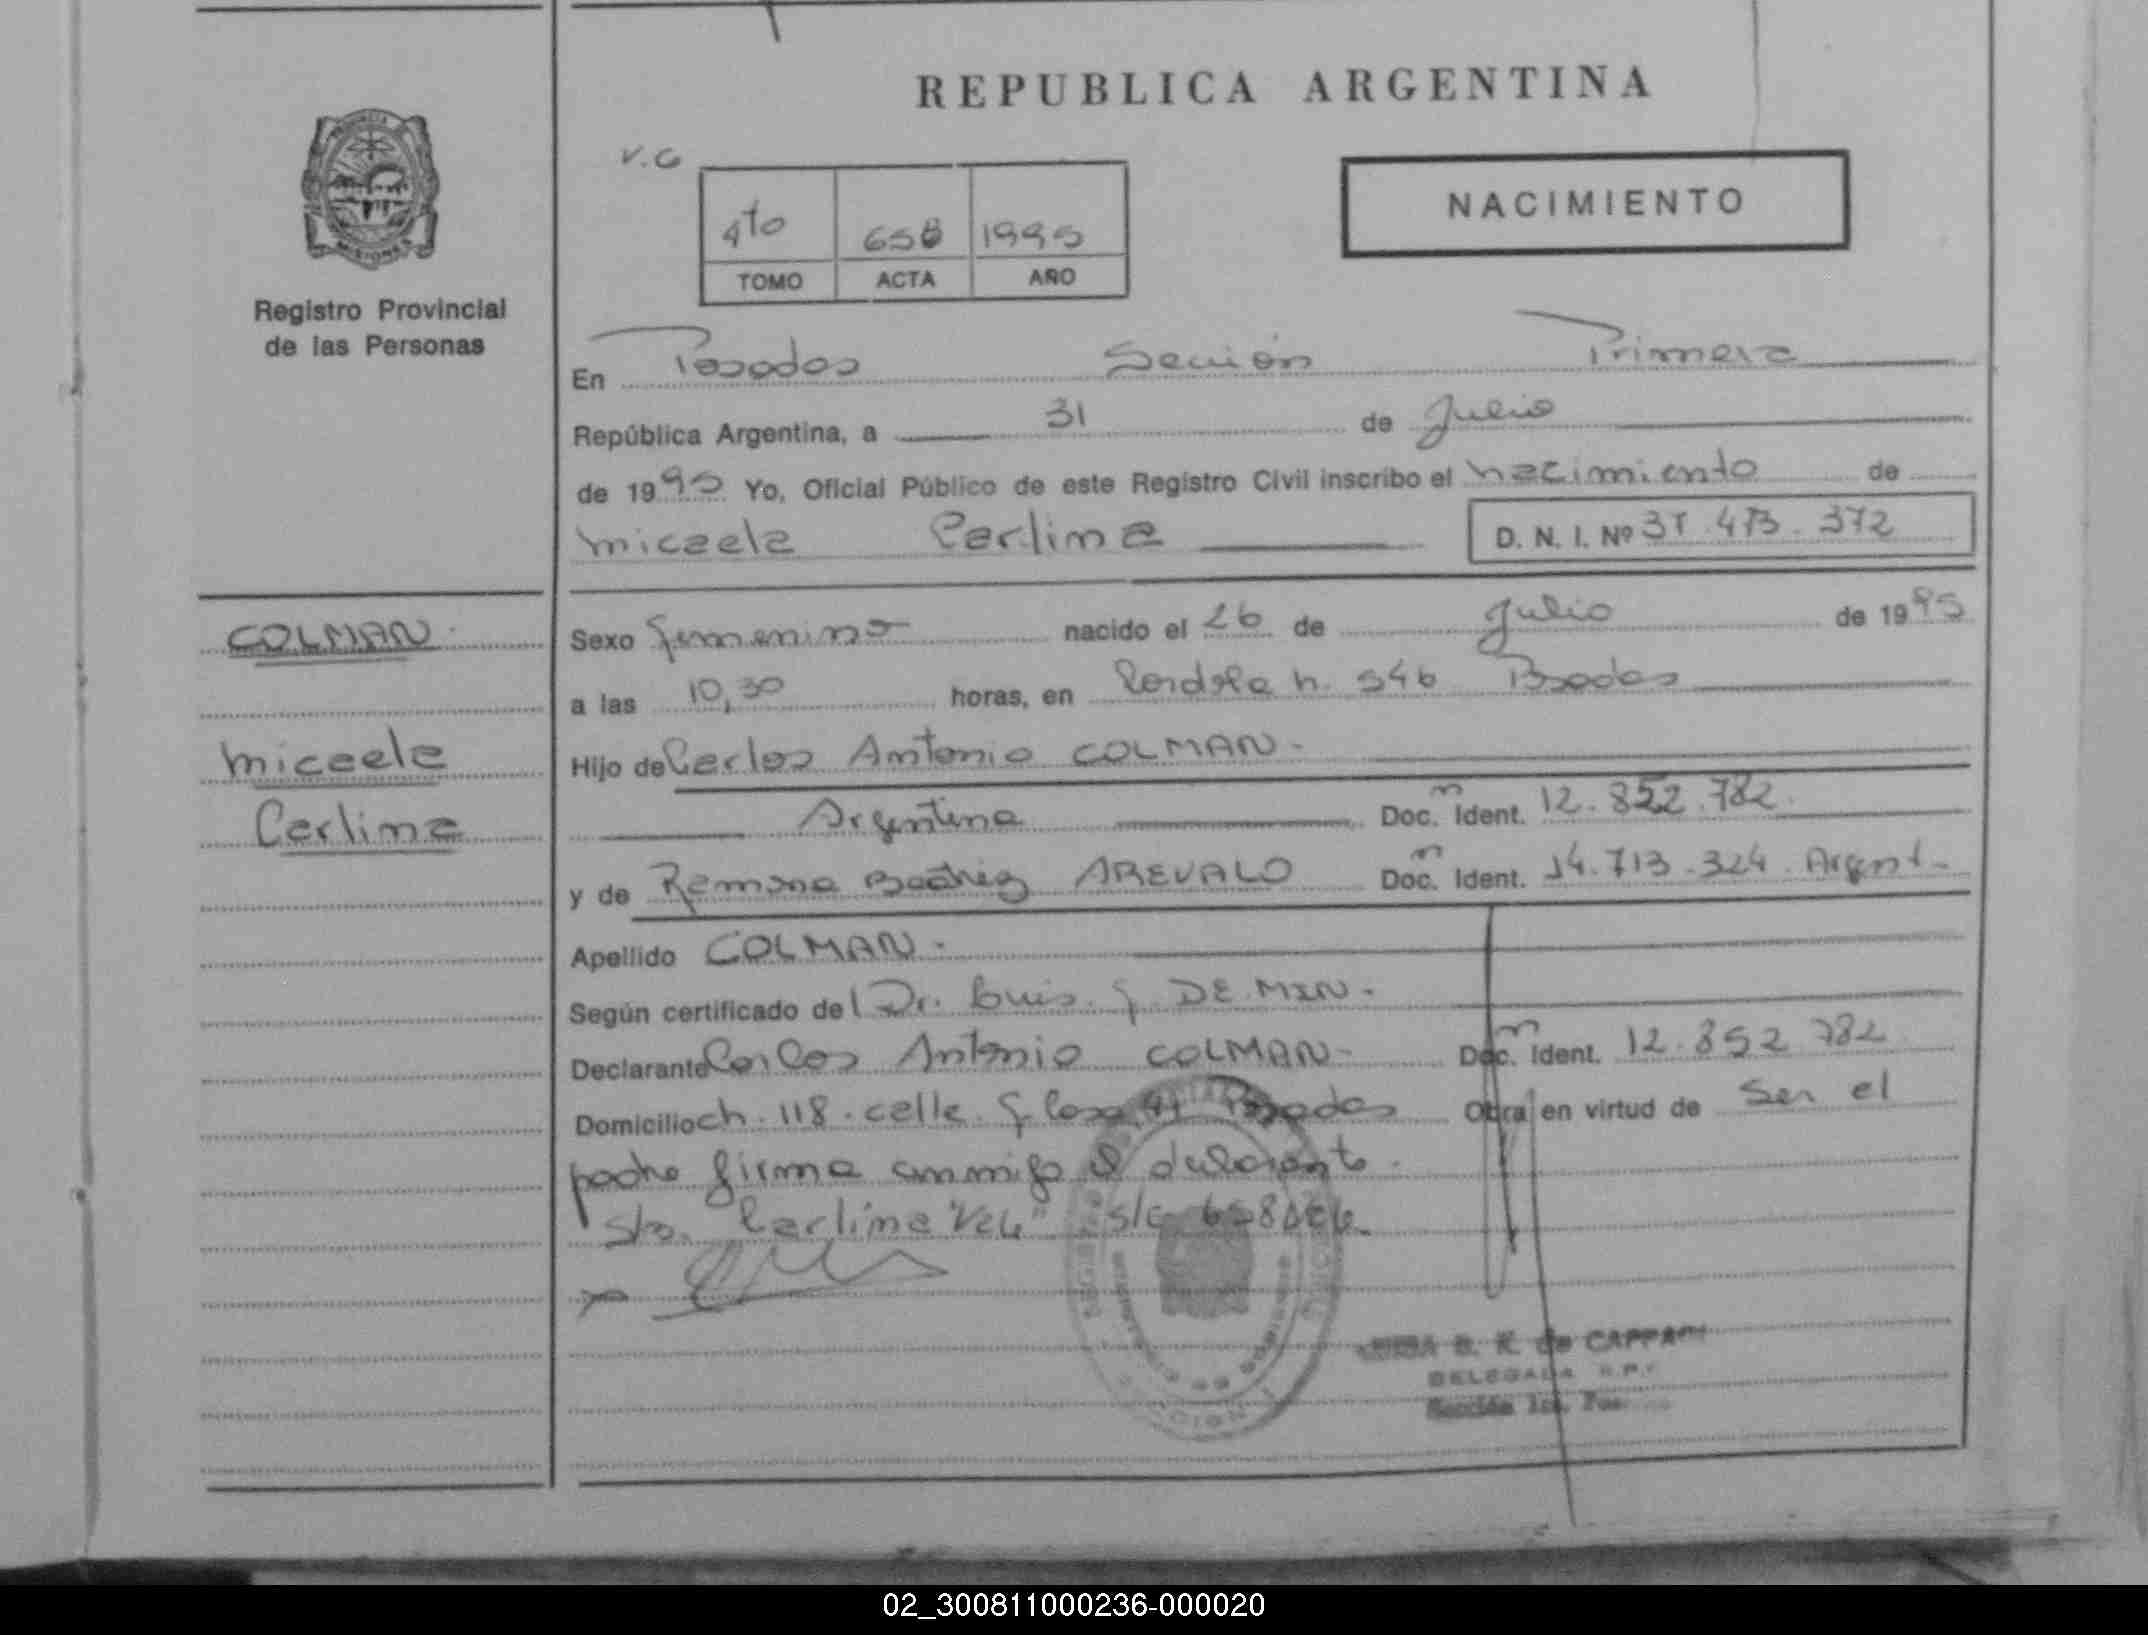 REPUBLICA ARGENTINA
V.G
4to 658 1995
TOMO ACTA AÑO
NACIMIENTO
PROVINCIA
MISIONES
Registro Provincial
de las Personas
En Posadas Sección Primera
República Argentina, a 31 de Julio
de 1995 Yo, Oficial Público de este Registro Civil inscribo el nacimiento de
Micaela Carlima
D. N. I. Nº 37.473.372
COLMAN.
Micaela
Carlima
Sexo femenino nacido el 26 de Julio de 1995
a las 10,30 horas, en Córdoba n. 546 Posadas
Hijo de Carlos Antonio COLMAN.
Argentina Doc. Ident. 12.852.782.
y de Ramona Beatriz AREVALO Doc. Ident. 14.713.324. Argent.
Apellido COLMAN.
Según certificado del Dr. Luis DE MIN.
Declarante Carlos Antonio COLMAN Doc. Ident. 12.852.782.
Domicilio ch. 118. calle Posadas Obra en virtud de ser el
padre firma conmigo el declarante.
S/o. "Carlima Vale" s/c
B. K. de CAPPA
DELEGADA R.P.
Sección 1ra. Pos
02_300811000236-000020